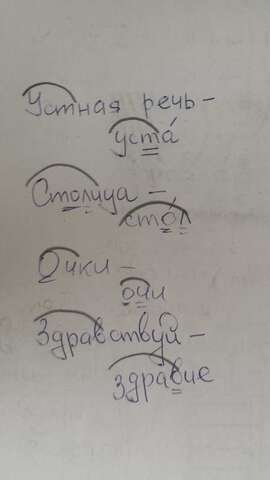 Устная речь –
уста́
Столица –
сто́л
Очки –
очи
Здравствуй –
здравие